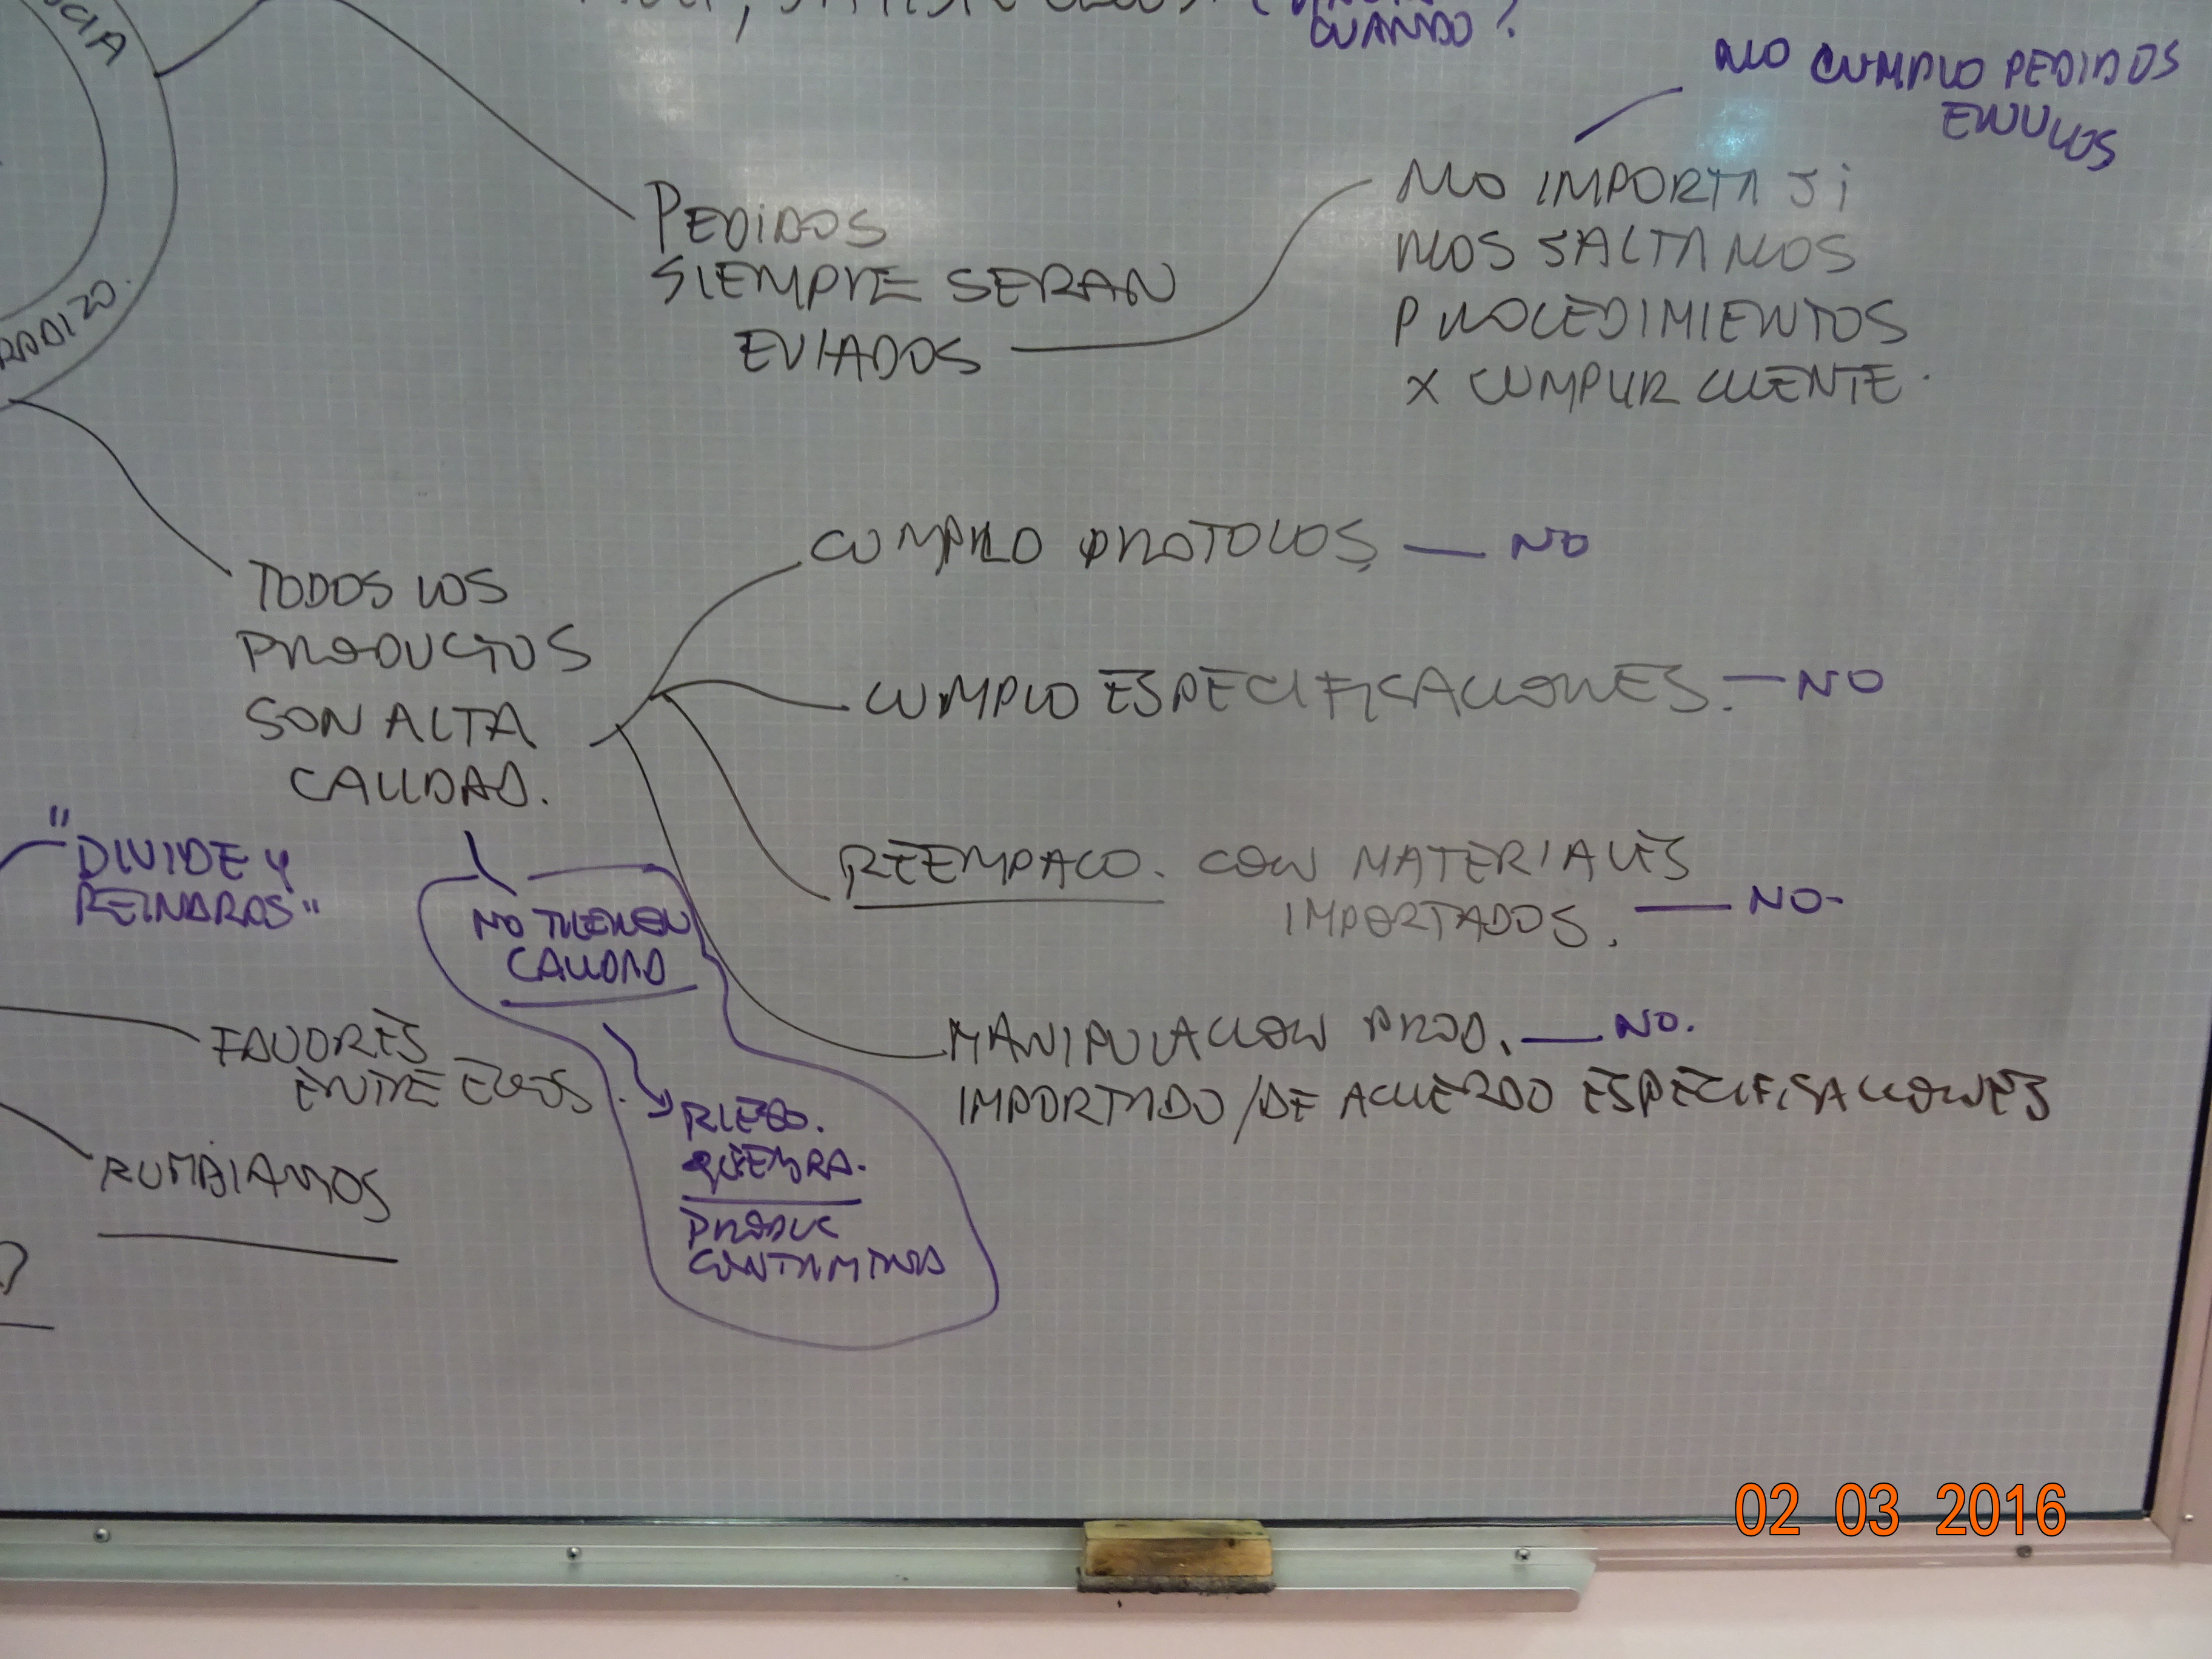 CUANDO?
NO CUMPLO PEDIDOS
ENVIOS
PEDIDOS
SIEMPRE SERAN
EVIADOS
NO IMPORTA Si
NOS SALTAMOS
PROCEDIMIENTOS
X CUMPLIR CLIENTE.
RADIZO.
CUMPLO PROTOLOS — NO
TODOS LOS
PRODUCTOS
SON ALTA
CALIDAD.
CUMPLO ESPECIFISACIONES. — NO
"DIVIDE Y
REINARAS"
REEMPACO. CON MATERIALES
IMPORTADOS. — NO-
NO TIENEN
CALIDAD
FAVORES
ENTRE EGOS.
MANIPULACION PROD. — NO.
IMPORTADO/DE ACUERDO ESPECIFISACIONES
QUIEBRA.
PRODUC
CONTAMINA
RUMBIAMOS
02 03 2016